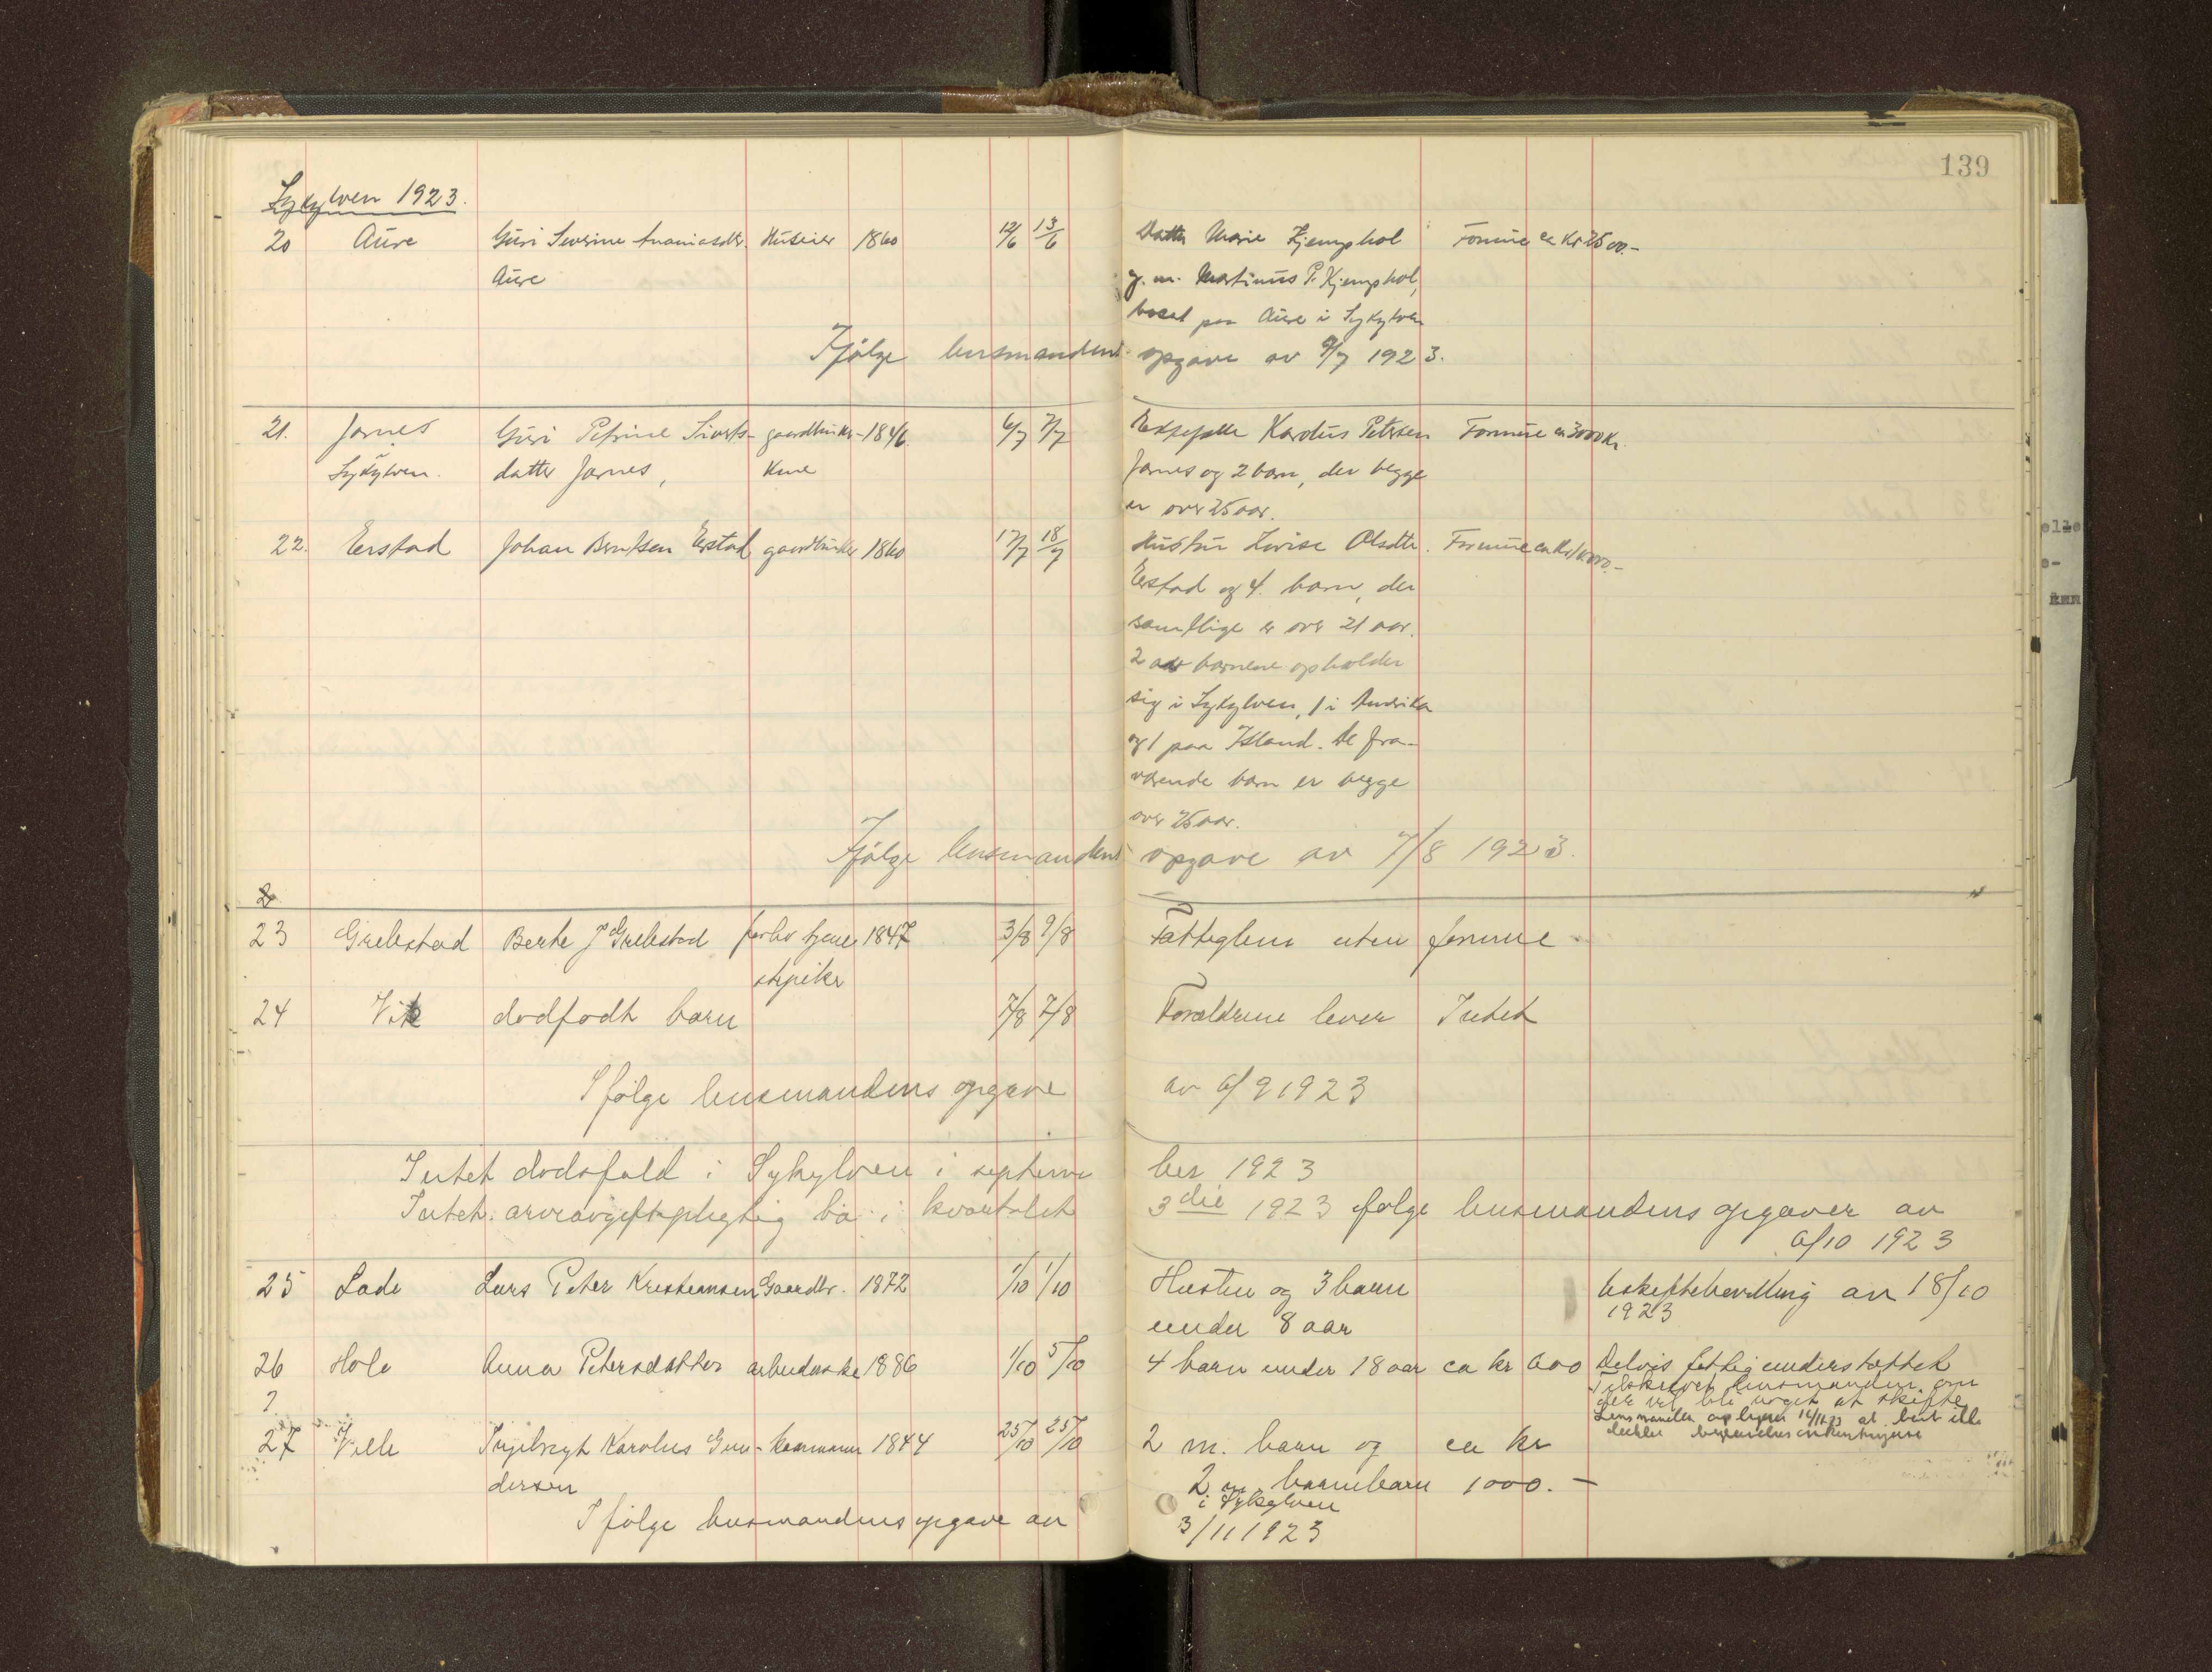 139
Sykylven 1923.
20 Aure Guri Severine Ananiasdtr. Huseier 1860 12/6 13/6 Datter Marie Kjemphol Formue ca kr 2500.-
Aure g. m. Martinus P. Kjemphol,
bosat paa Aure i Sykylven
Ifølge lensmandens opgave av 9/7 1923.
21. Jarnes Guri Petrine Siverts- gaardbruker- 1846 6/7 7/7 Karolus Petersen Formue ca 3000 kr.
Sykylven. datter Jarnes, kone Jarnes og 2 barn, der begge
er over 25 aar.
22. Erstad Johan Berntsen Erstad gaardbruker 1860 17/7 18/7 Hustru Lovise Olsdtr. Formue ca kr
Erstad og 4 barn, der
samtlige er over 21 aar.
2 av barnene opholder
sig i Sykylven, 1 i Amerika
og 1 paa Island. De fra-
værende barn er begge
over 25 aar.
Ifølge lensmandens opgave av 7/8 1923.
23 Grebstad Berte J Grebstad forhv tjene 1847 3/8 9/8 Fattiglem uten formue
stepike
24 Vik dødfødt barn 7/8 7/8 Forældrene lever Intet
Ifølge lensmandens opgave av 6/9 1923
Intet dødsfald i Sykylven i septem ber 1923
Intet arveavgiftspligtig bo i kvartalet 3die 1923 ifølge lensmandens opgaver av
6/10 1923
25 Lade Lars Peter Kristiansen Gaardbr. 1872 1/10 1/10 Hustru og 3 barn Uskiftebevilling av 18/10
under 8 aar 1923
26 Hole Anna Petersdatter arbeiderske 1886 1/10 5/10 4 barn under 18 aar ca kr 600 Delvis fattigunderstøttet
Tilskrevet lensmanden om
der vil bli noget at skifte
?
Lensmanden oplyser 14/11 23 at boet ikke
dækker begravelsesomkostningene
27 Velle Ingebrigt Karolus Gun- kaarmann 1844 25/10 25/10 2 m. barn og ca kr
dersen 2 m. barnebarn 1000.-
i Sykylven
Ifølge lensmandens opgave av 3/11 1923
elle
e-